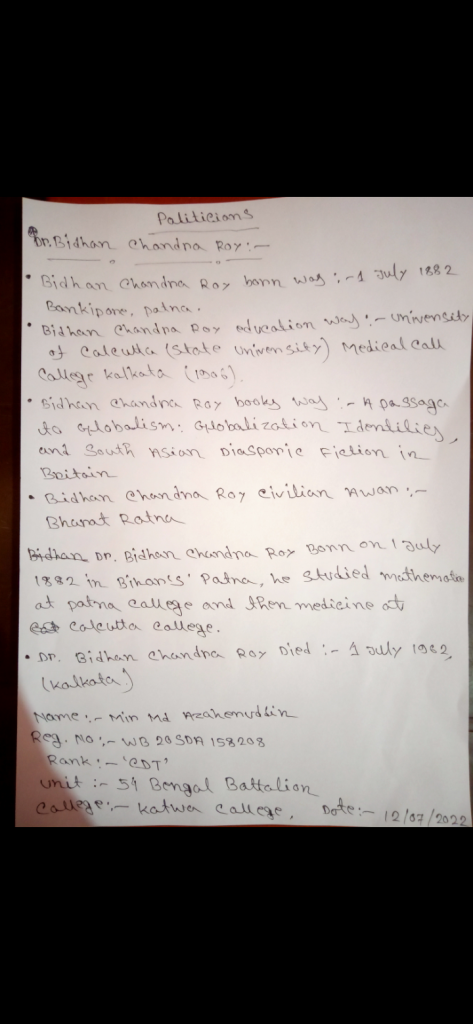 Politicians
Dr. Bidhan Chandra Roy :-
• Bidhan Chandra Roy born was :- 1 July 1882
Bankipore, patna.
• Bidhan Chandra Roy education was :- University
of Calcutta (State University) Medical Call
College Kalkata (1906).
• Bidhan Chandra Roy books was :- A passaga
to Globalism: Globalization Identities,
and South Asian Diasporic Fiction in
Britain
• Bidhan Chandra Roy civilian Awar :-
Bharat Ratna
Bidhan Dr. Bidhan Chandra Roy Born on 1 July
1882 in Bihar's' Patna, he studied mathematics
at patna College and then medicine at
Calcutta College.
• Dr. Bidhan Chandra Roy Died :- 1 July 1962,
(Kalkata)
Name :- Mir Md Azaheruddin
Reg. No :- WB 20 SDA 158208
Rank :- 'CDT'
unit :- 54 Bengal Battalion
College :- Katwa College, Date :- 12/07/2022